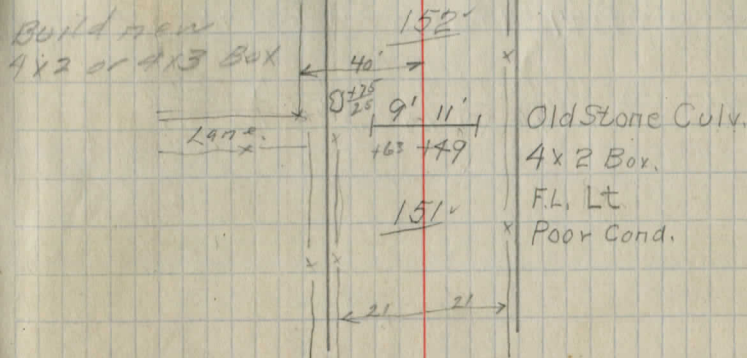 Build new
4x2 or 4x3 Box
152
40'
+75
25
9' 11'
Lane.
+63 +49
151
21 21
Old Stone Culv.
4x2 Box.
F.L. Lt
Poor Cond.